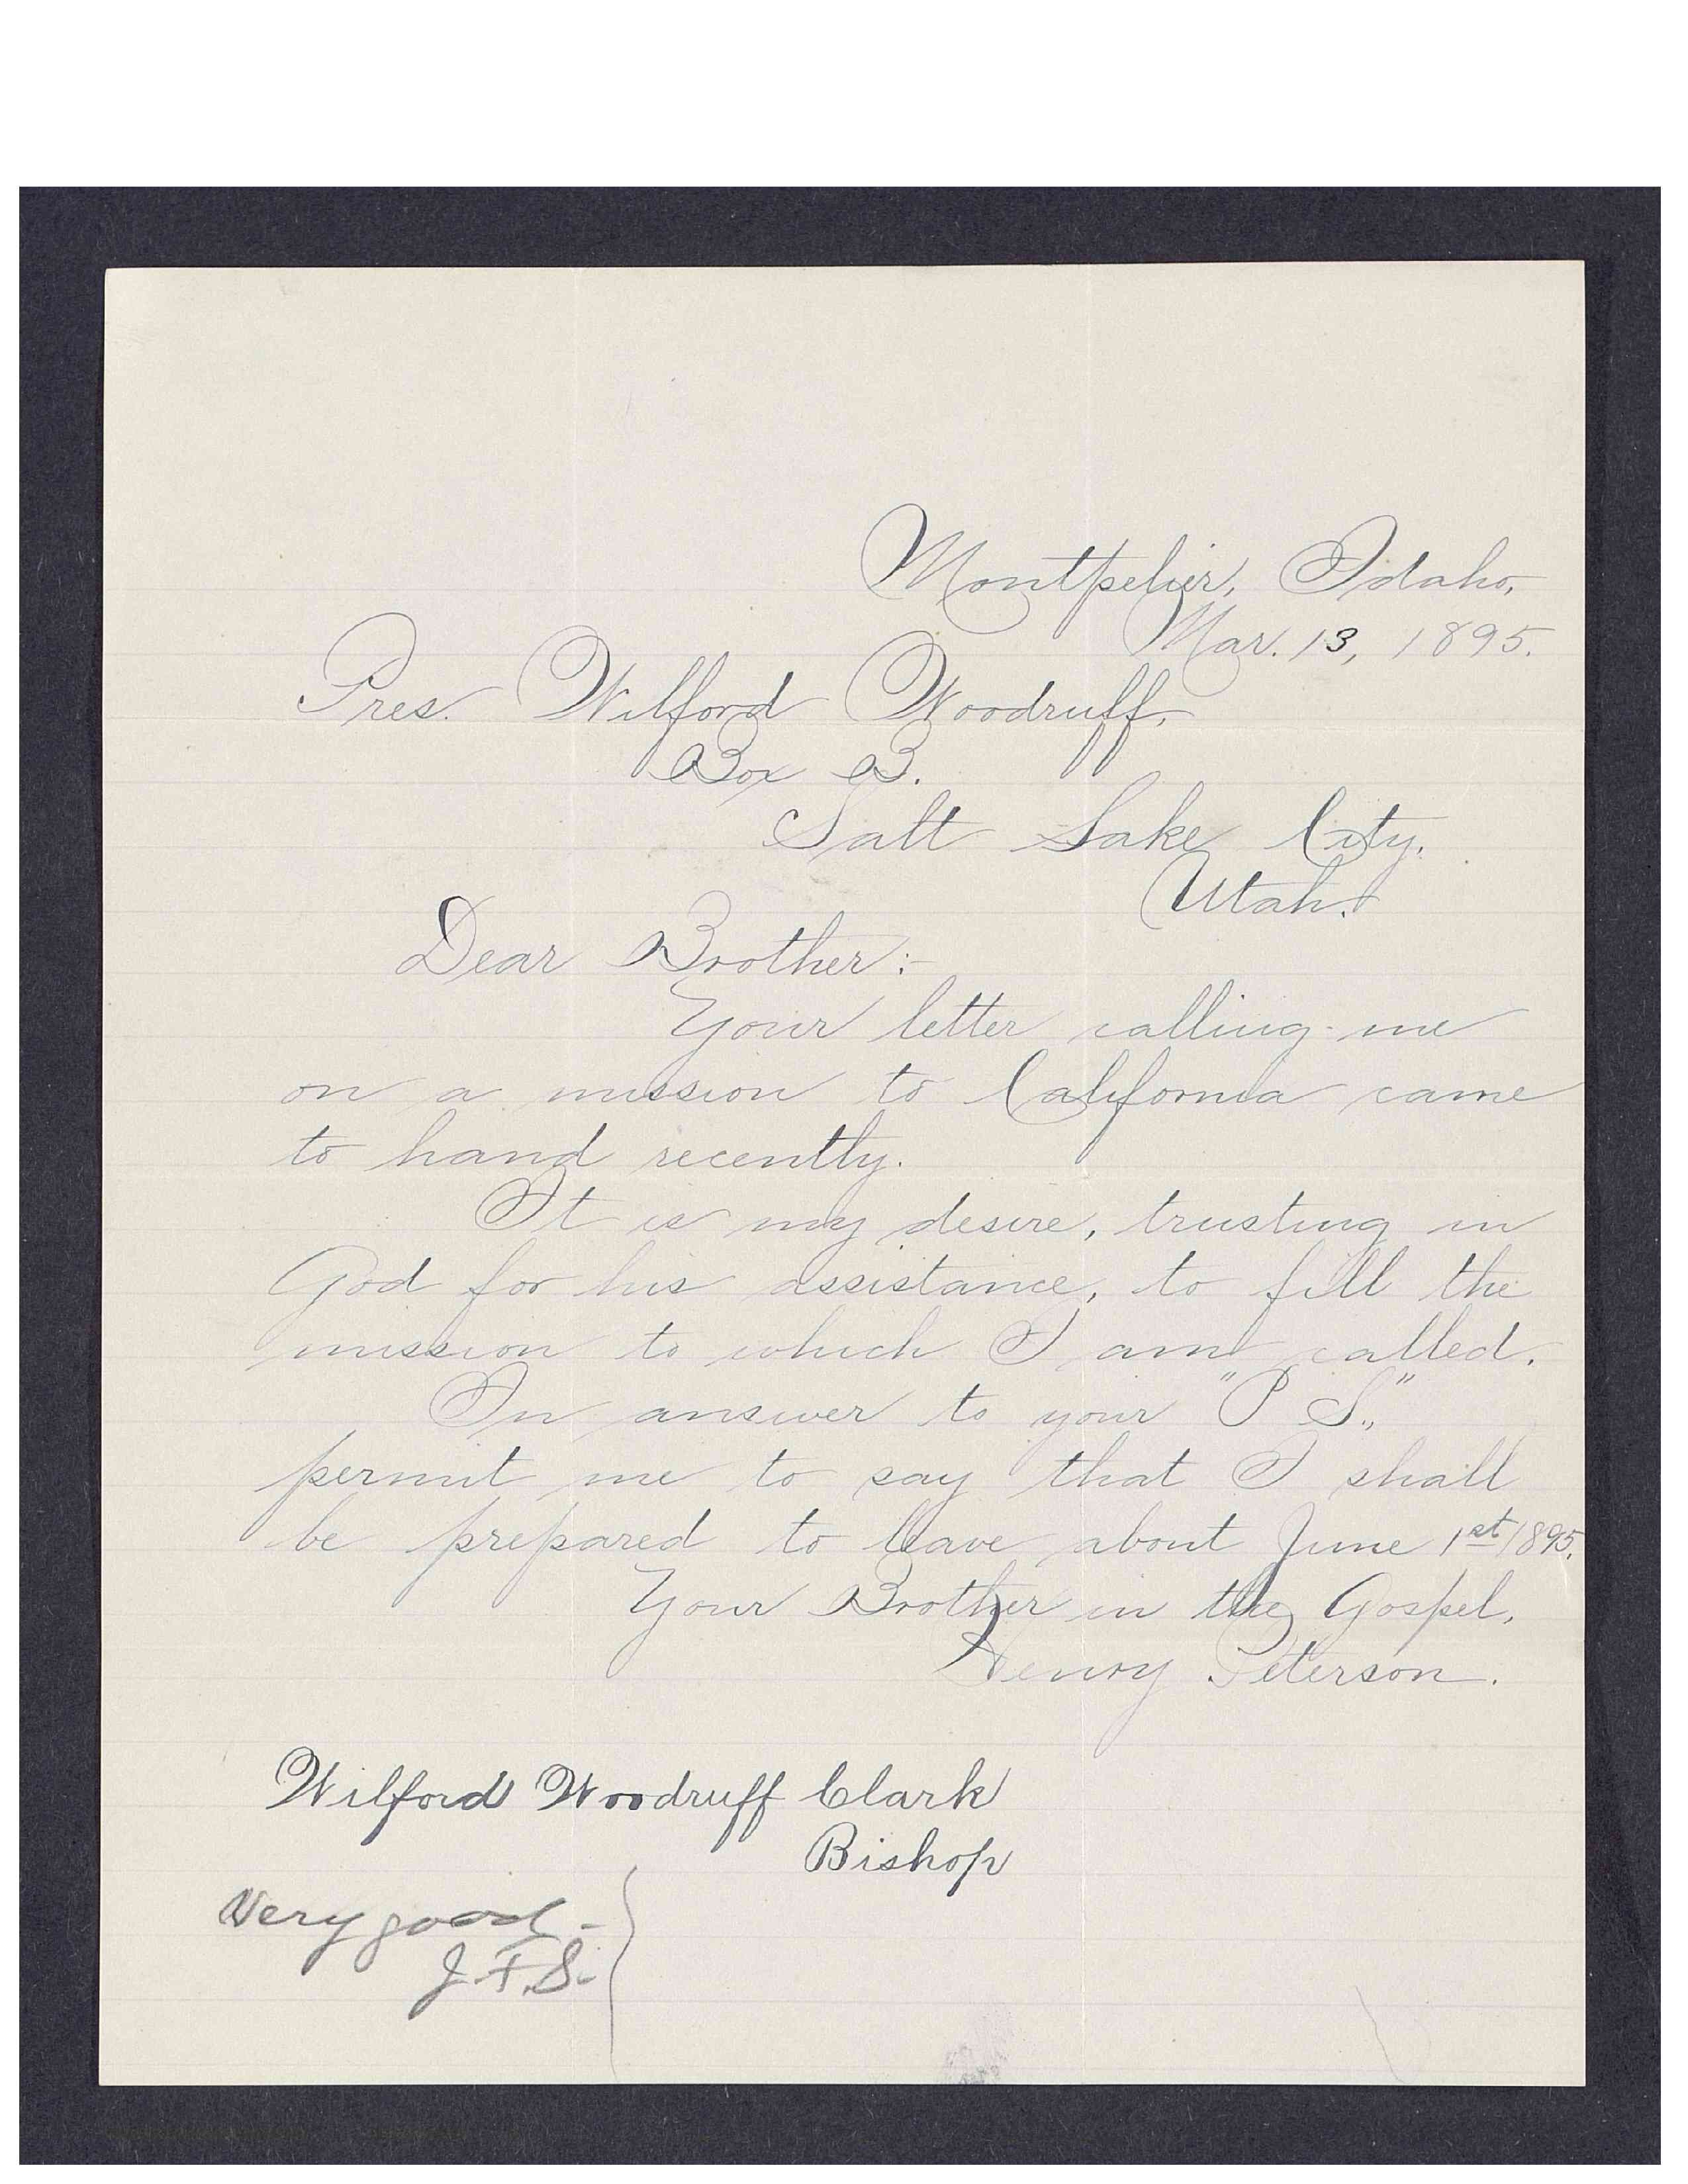 Montpelier, Idaho,
Mar. 13, 1895.
Pres. Wilford Woodruff,
Box B.
Salt Lake City,
Utah.
Dear Brother:-
Your letter calling me
on a mission to California came
to hand recently.
It is my desire, trusting in
God for his assistance, to fill the
mission to which I am called.
In answer to your "P S.,"
permit me to say that I shall
be prepared to leave about June 1st 1895.
Your Brother in the Gospel,
Henry Peterson.
Wilford Woodruff Clark
Bishop
Very good -
J. F. S.